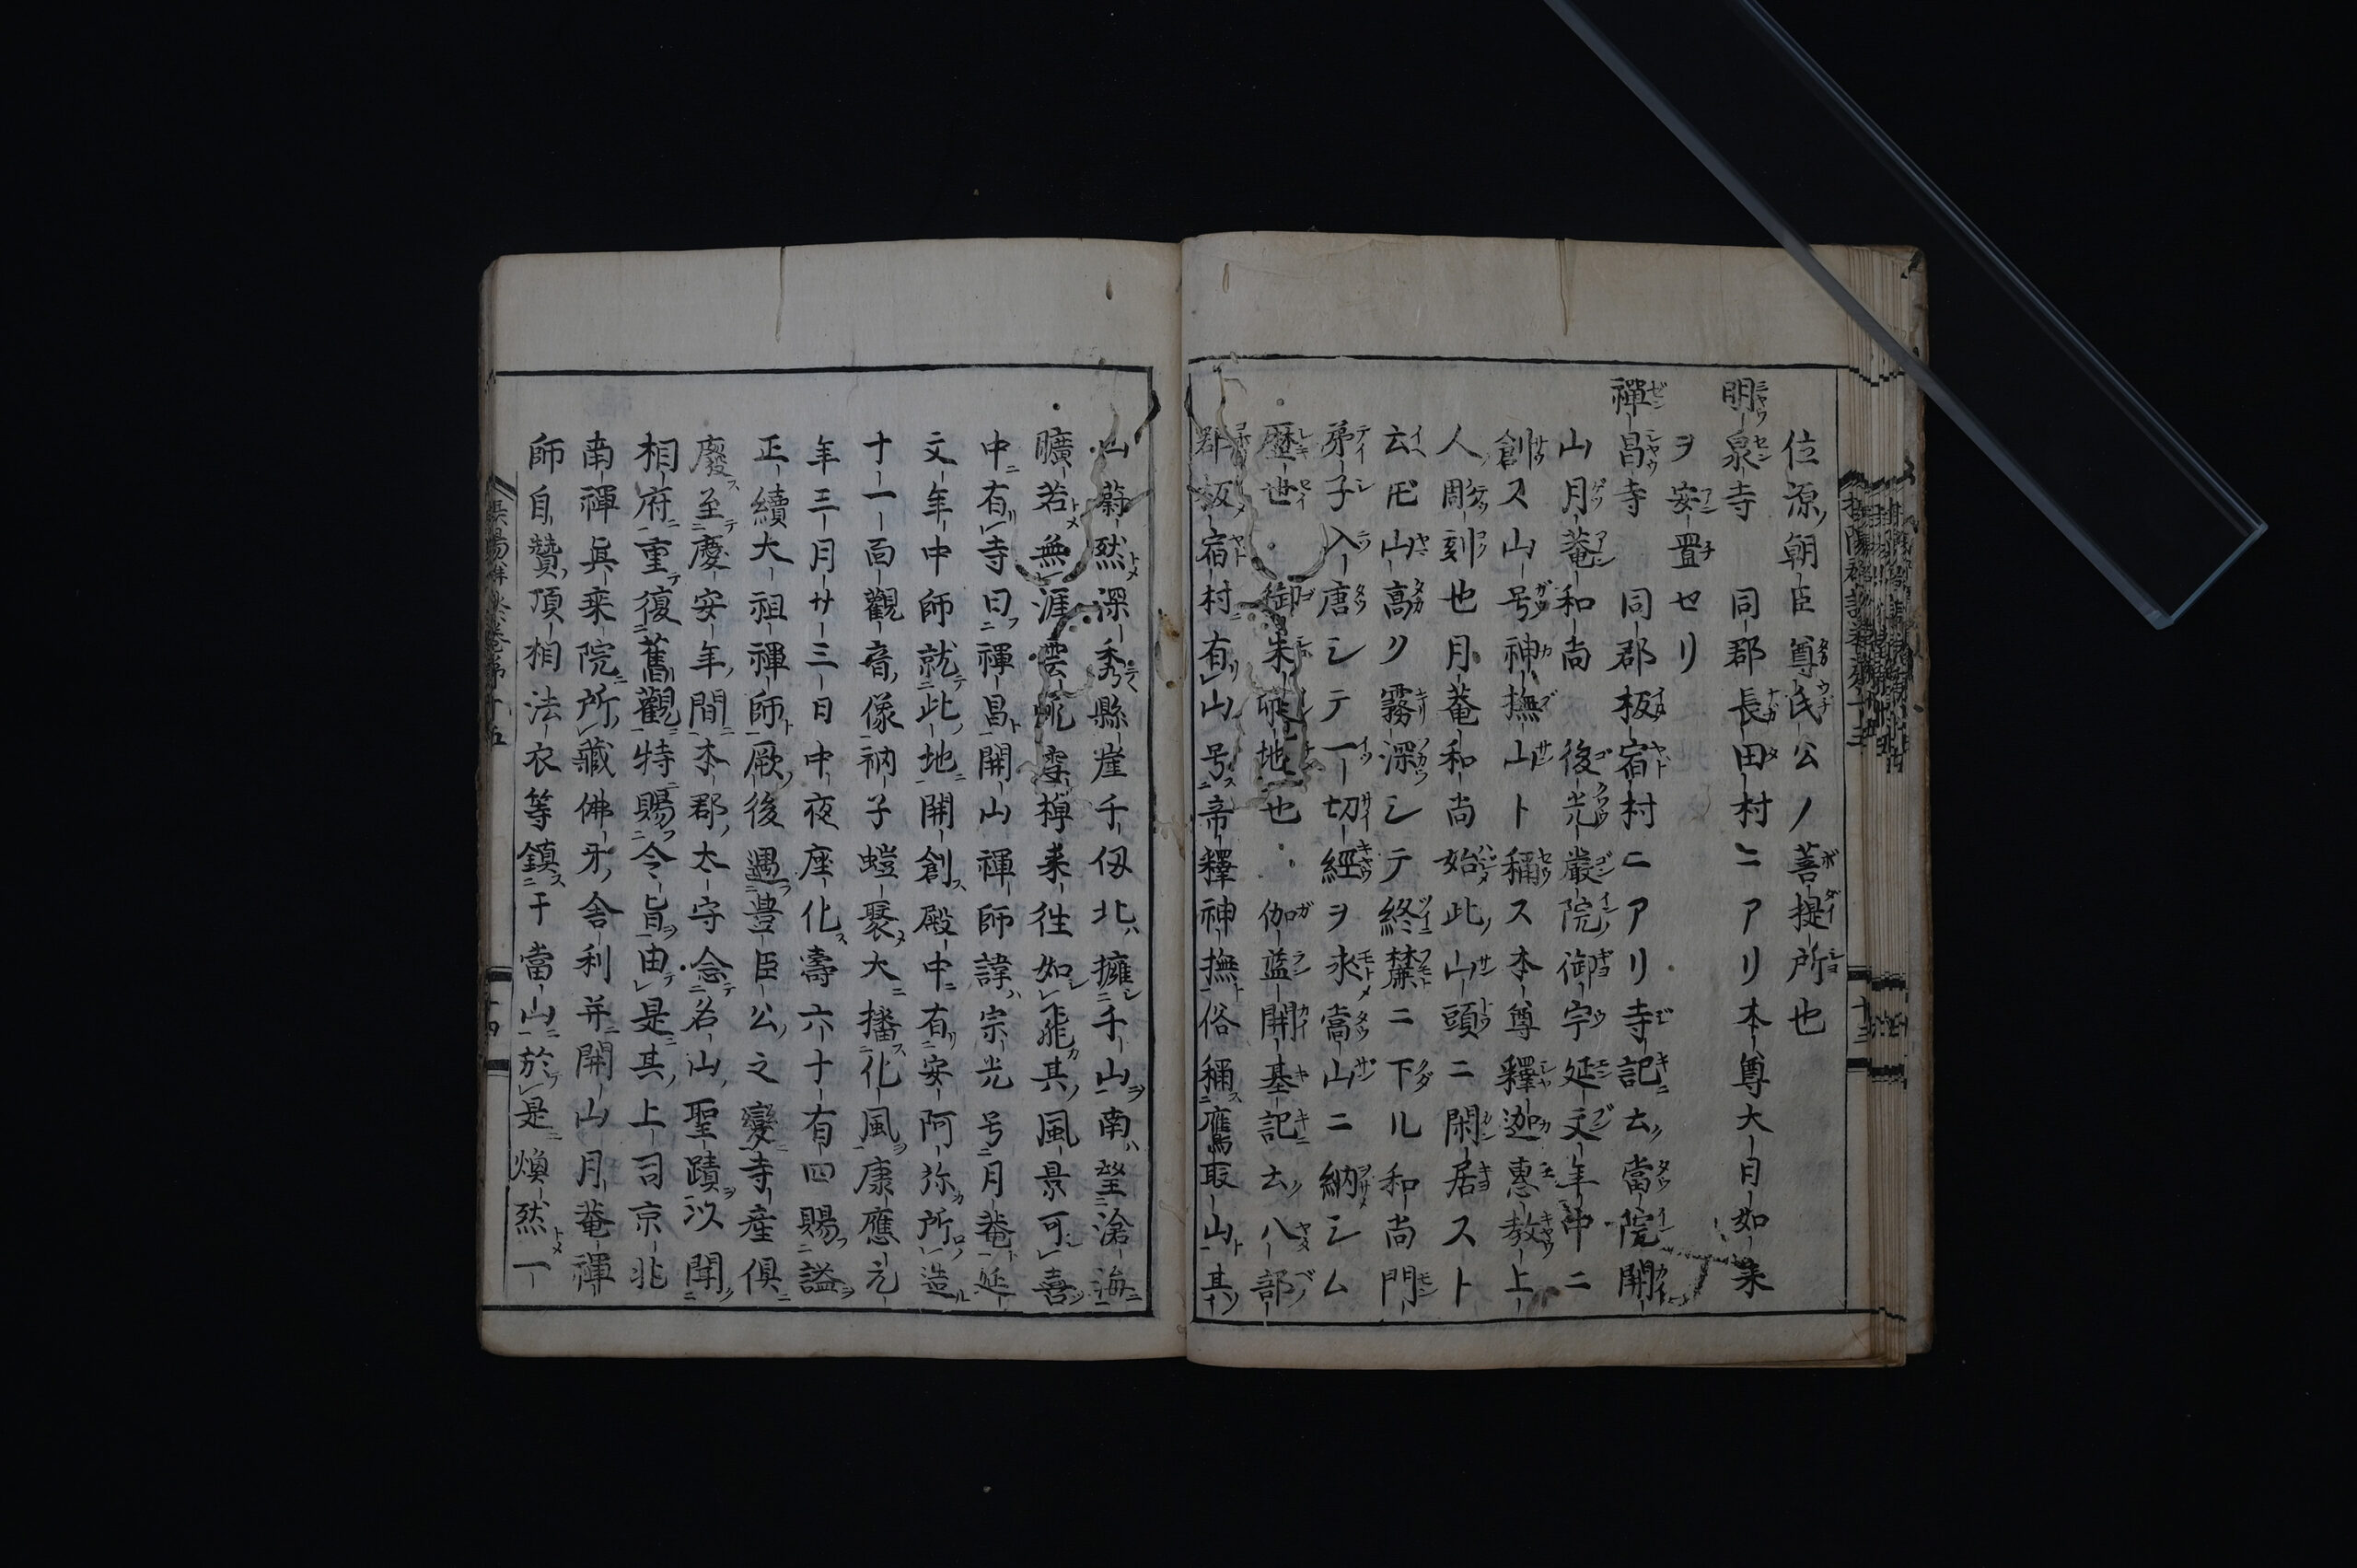 位源朝臣尊氏公ノ菩提所也
明泉寺 同郡長田村ニアリ本尊大日如来
ヲ安置セリ
禪昌寺 同郡板宿村ニアリ寺記云當院開
山月菴和尚 後光嚴院御宇延文年中ニ
創ス山号神撫山ト稱ス本尊釋迦惠教上
人彫刻也月菴和尚始此山頭ニ閑居スト
云𪜈山高ク霧深シテ終麓ニ下ル和尚門
弟子入唐シテ一切經ヲ求當山ニ納シム
歴世 御朱 地也 伽藍開基記云八部
郡板宿村有山号帝釋神撫俗稱鷹取山其
山蔚然深秀縣崖千仭北擁千山南望滄海
曠若無涯雲 雪 来往如飛其風景可喜
中有寺曰禪昌開山禪師諱宗光号月菴延
文年中師就此地開創殿中有安阿弥所造
十一面觀音像衲子螘聚大播化風康應元
年三月廿三日中夜座化壽六十有四賜謚
正續大祖禪師厥後遇豊臣公之變寺産俱
廢至慶安年間本郡太守念名山聖蹟以聞
相府重復舊觀特賜令旨由是其上司京兆
南禪眞乗院所藏佛牙舎利并開山月菴禪
師自贊頂相法衣等鎮于當山於是煥然一
十三
十四